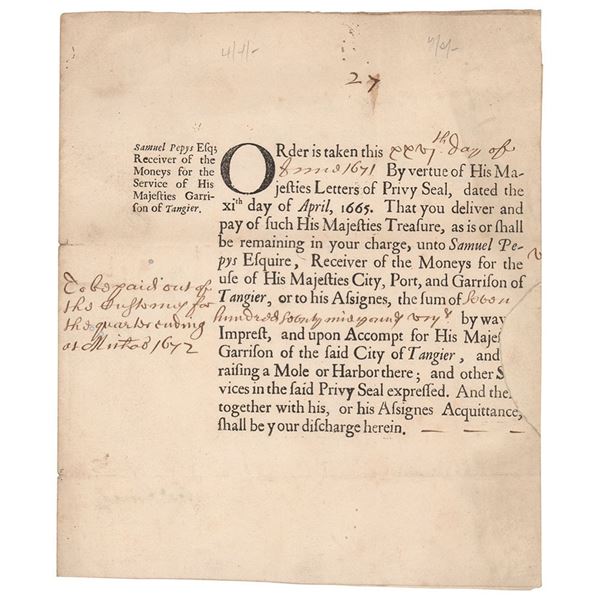 27
Samuel Pepys Esq;
Receiver of the
Moneys for the
Service of His
Majesties Garri-
son of Tangier.
ORder is taken this xxvjth day of
June 1671 By vertue of His Ma-
jesties Letters of Privy Seal, dated the
xith day of April, 1665. That you deliver and
pay of such His Majesties Treasure, as is or shall
be remaining in your charge, unto Samuel Pe-
pys Esquire, Receiver of the Moneys for the
use of His Majesties City, Port, and Garrison of
Tangier, or to his Assignes, the sum of Seven
hundred seventy nine pounds by way
Imprest, and upon Accompt for His Majes
Garrison of the said City of Tangier, and
raising a Mole or Harbor there; and other S
vices in the said Privy Seal expressed. And the
together with his, or his Assignes Acquittance,
shall be your discharge herein.
To be paid out of
the Customes for
the quarter ending
at 1672